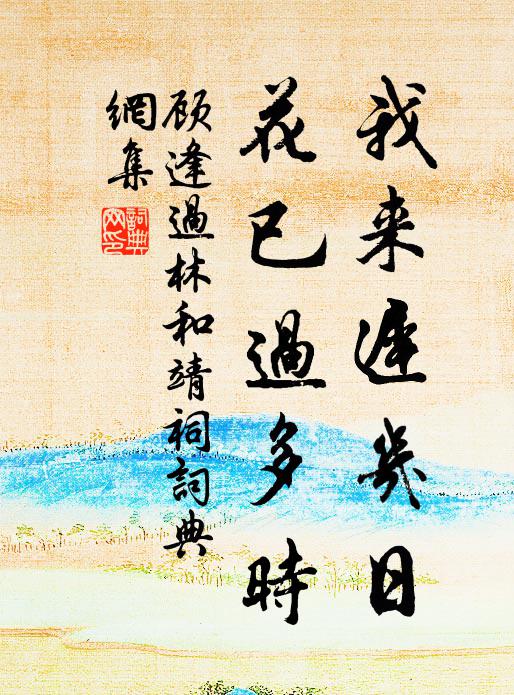 我来遲幾日
花已過多時
顾逢過林和靖祠詞典
網集
詞典
网印